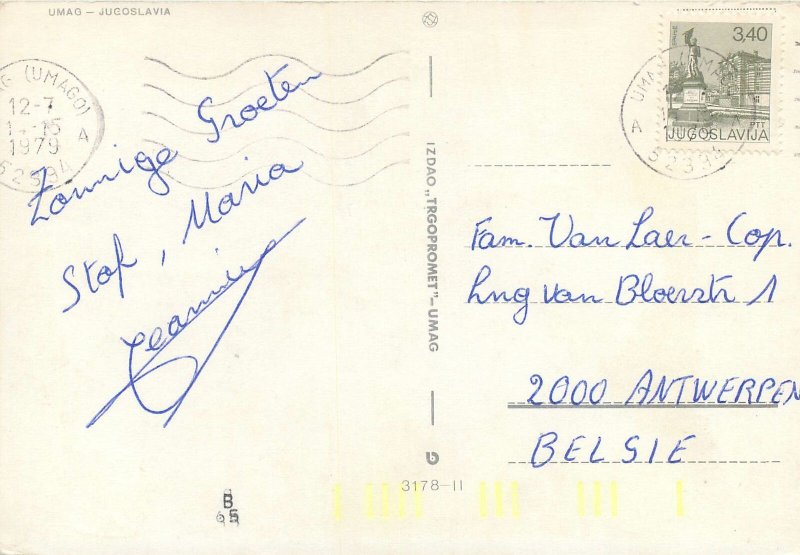 UMAG – JUGOSLAVIA
G (UMAGO)
12-7
1979 A
52394
Zonnige Groeten
Staf, Maria
Jeannine
IZDAO „TRGOPROMET"–UMAG
3178-II
B
65
3,40
PTT
JUGOSLAVIJA
UMAG
A
52394
Fam. Van Laer - Cop.
Lng van Bloerstr 1
2000 ANTWERPEN
BELGIE